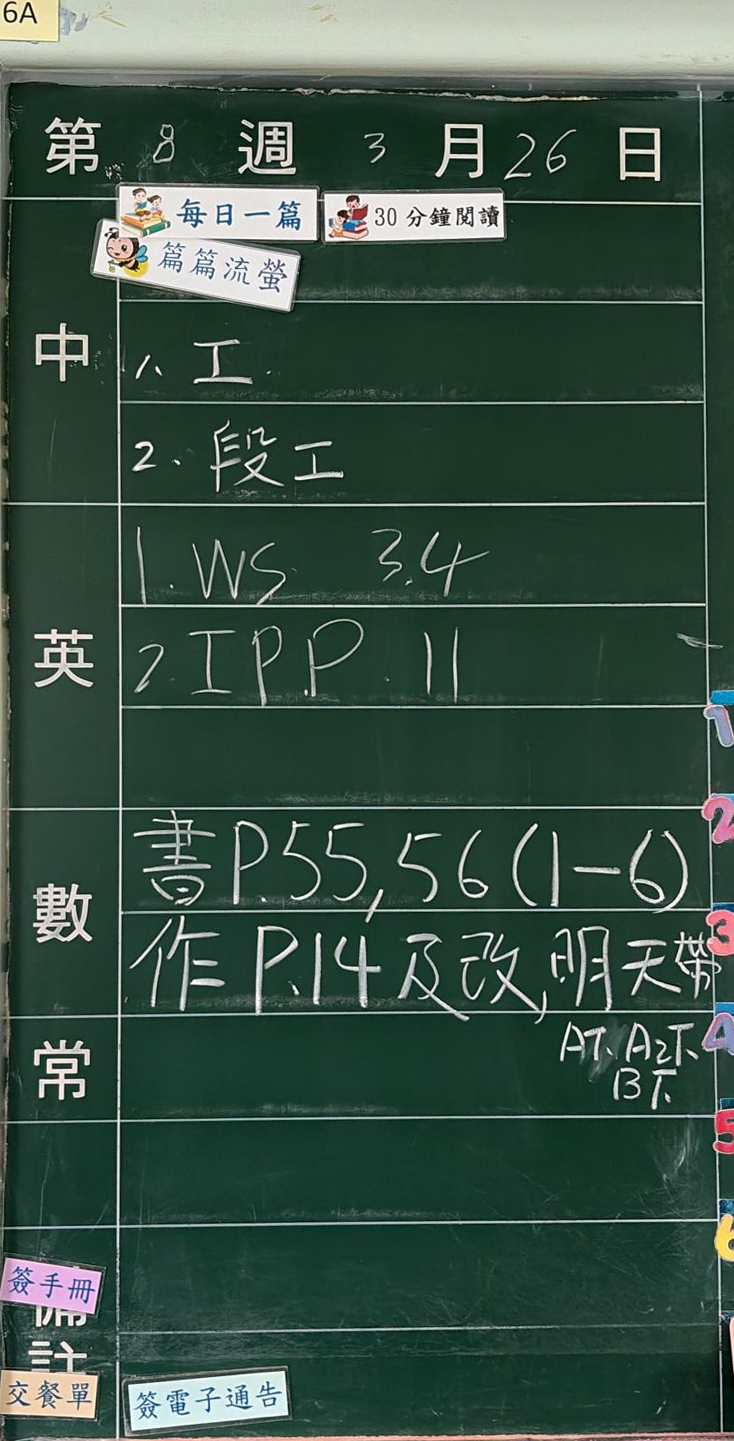 6A
第 8 週 3 月 26 日
每日一篇 30分鐘閱讀
篇篇流螢
中
1. 工
2. 段工
英
1. WS 3.4
2. I.P.P 11
數
書P.55,56(1-6)
作 P.14 及改,明天帶
常
A下、A2下、
B下
簽手冊
備註
交餐單
簽電子通告
1
2
3
4
5
6